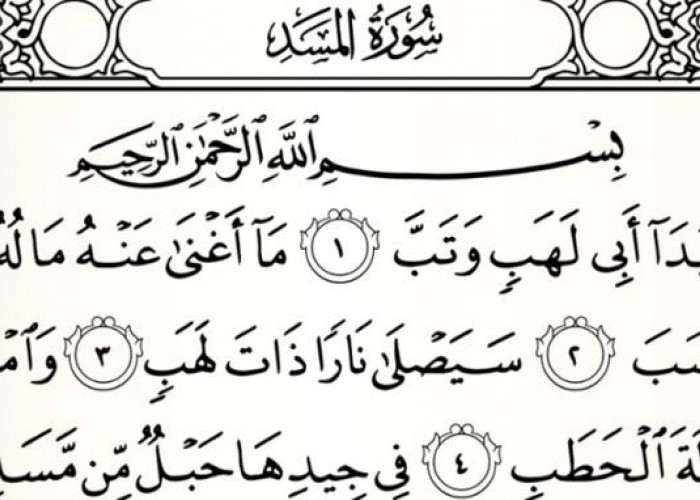 سُورَةُ المَسَدِ
بِسْمِ ٱللَّهِ ٱلرَّحْمَٰنِ ٱلرَّحِيمِ
يَدَآ أَبِى لَهَبٍ وَتَبَّ ١ مَآ أَغْنَىٰ عَنْهُ مَالُهُ
سَبَ ٢ سَيَصْلَىٰ نَارًا ذَاتَ لَهَبٍ ٣ وَٱمْ
لَةَ ٱلْحَطَبِ ٤ فِى جِيدِهَا حَبْلٌ مِّن مَّسَ